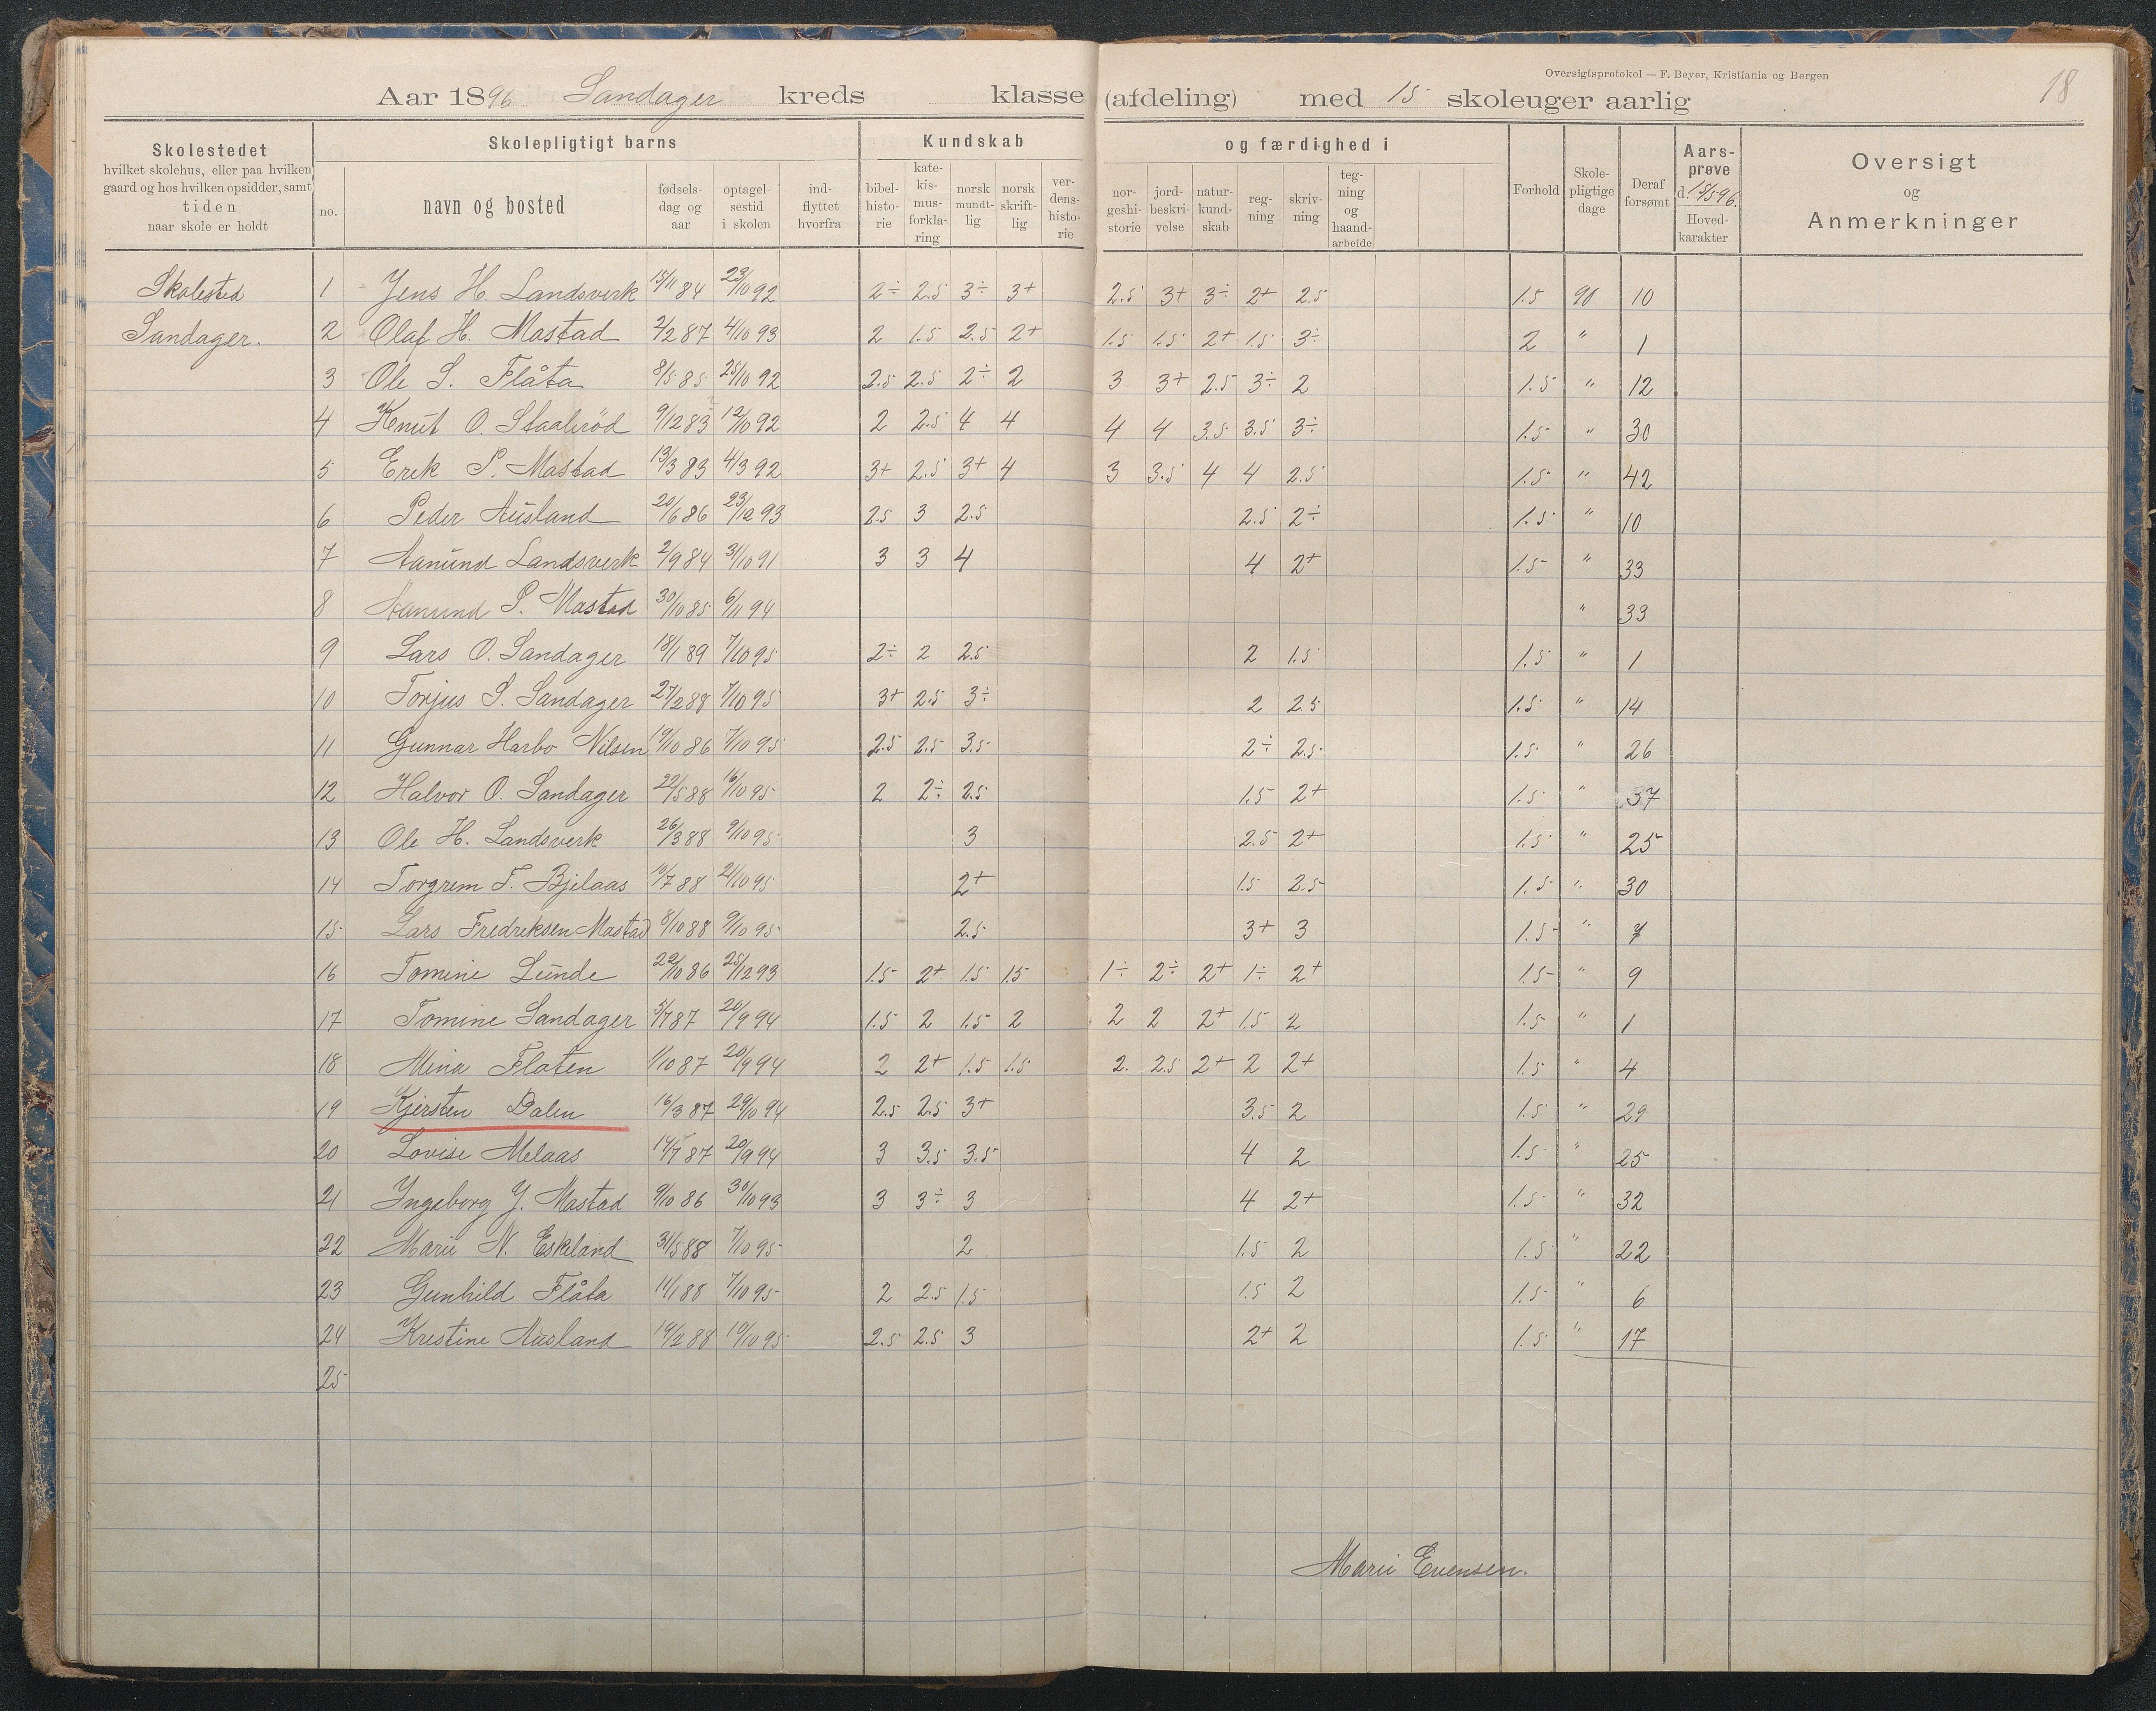 Oversigtsprotokol — F. Beyer, Kristiania og Bergen
18
Aar 1896 Sandager kreds klasse (afdeling) med 15 skoleuger aarlig
Skolestedet hvilket skolehus, eller paa hvilken gaard og hos hvilken opsidder, samt tiden naar skole er holdt
Skolepligtigt barns
no. navn og bosted fødsels-dag og aar optagel-sestid i skolen ind-flyttet hvorfra
Kundskab og færdighed i
bibel-histo-rie kate-kis-mus-forkla-ring norsk mundt-lig norsk skrift-lig ver-dens-histo-rie nor-geshi-storie jord-beskri-velse natur-kund-skab reg-ning skriv-ning teg-ning og haand-arbeide
Forhold Skole-pligtige dage Deraf forsømt Aars-prøve d. 18/5 96. Hoved-karakter
Oversigt og Anmerkninger
Skolested 1 Jens H. Landsverk 15/11 84 23/10 92 2÷ 2.5 3÷ 3+ 2.5 3+ 3÷ 2+ 2.5 1.5 90 10
Sandager. 2 Olaf H. Mastad 2/2 87 4/10 93 2 1.5 2.5 2+ 1.5 1.5 2+ 1.5 3÷ 2 " 1
3 Ole S. Flåta 8/5 85 25/10 92 2.5 2.5 2÷ 2 3 3+ 2.5 3÷ 2 1.5 " 12
4 Knut O. Staalerød 9/12 83 12/10 92 2 2.5 4 4 4 4 3.5 3.5 3÷ 1.5 " 30
5 Erik P. Mastad 13/3 83 4/3 92 3+ 2.5 3+ 4 3 3.5 4 4 2.5 1.5 " 42
6 Peder Ausland 20/6 86 23/12 93 2.5 3 2.5 2.5 2÷ 1.5 " 10
7 Aanund Landsverk 2/9 84 31/10 91 3 3 4 4 2+ 1.5 " 33
8 Aanund P. Mastad 30/10 85 6/11 94 " 33
9 Lars O. Sandager 18/1 89 7/10 95 2÷ 2 2.5 2 1.5 1.5 " 1
10 Torjus S. Sandager 27/2 88 7/10 95 3+ 2.5 3÷ 2 2.5 1.5 " 14
11 Gunnar Harbo Nilsen 19/10 86 7/10 95 2.5 2.5 3.5 2÷ 2.5 1.5 " 26
12 Halvor O. Sandager 22/5 88 16/10 95 2 2÷ 2.5 1.5 2+ 1.5 " 37
13 Ole H. Landsverk 26/3 88 9/10 95 3 2.5 2+ 1.5 " 25
14 Torgrem T. Bjelaas 10/7 88 21/10 95 2+ 1.5 2.5 1.5 " 30
15 Lars Fredreksen Mastad 8/10 88 9/10 95 2.5 3+ 3 1.5 " 7
16 Tomine Lunde 22/10 86 25/12 93 1.5 2+ 1.5 1.5 1÷ 2÷ 2+ 1÷ 2+ 1.5 " 9
17 Tomine Sandager 5/7 87 20/9 94 1.5 2 1.5 2 2 2 2+ 1.5 2 1.5 " 1
18 Mina Flaten 1/10 87 20/9 94 2 2+ 1.5 1.5 2. 2.5 2+ 2 2+ 1.5 " 4
19 Kjersten Dalen 16/3 87 29/10 94 2.5 2.5 3+ 3.5 2 1.5 " 29
20 Lovise Melaas 14/7 87 20/9 94 3 3.5 3.5 4 2 1.5 " 25
21 Ingeborg J. Mastad 9/10 86 30/10 93 3 3÷ 3 4 2+ 1.5 " 32
22 Marie N. Eskeland 31/5 88 7/10 95 2 1.5 2 1.5 " 22
23 Gunhild Flåta 11/1 88 7/10 95 2 2.5 1.5 1.5 2 1.5 " 6
24 Krestine Ausland 19/2 88 10/10 95 2.5 2.5 3 2+ 2 1.5 " 17
25
Marie Evensen.